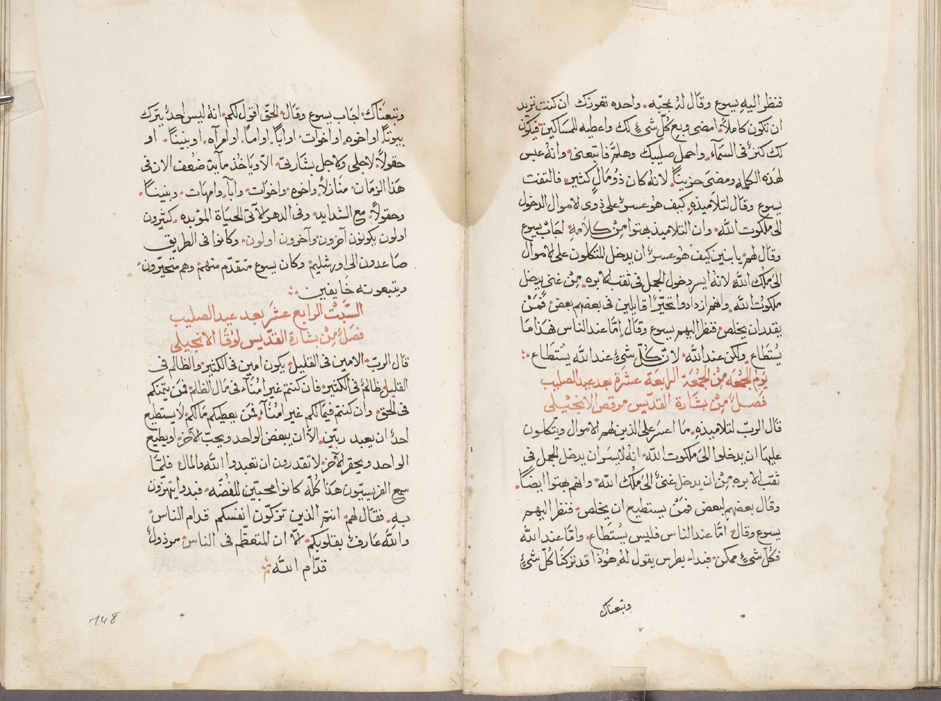 فنظر اليه يسوع وقال له بمحبه. واحده تعوزك ان كنت تريد
ان تكون كاملاً. امضى وبيع كلّ شىٍ لك واعطيه للمساكين فيكون
لك كنز فى السمآء. واحمل صليبك وهلمّ فاتبعنى. وانه عبس
لهذه الكلمه ومضى حزيناً. لانه كان ذو مال كثير. فالتفت
يسوع وقال لتلاميذه. كيف هو عسر على ذوى الاموال الدخول
الى ملكوت الله. وان التلاميذ بهتوا من كلامهِ. اجاب يسوع
وقال لهم يا بنين كيف هو عسر ان يدخل المتكلون على الاموال
الى ملك الله. لانه ايسر دخول الجمل فى ثقب الابره من غنى يدخل
ملكوت الله. وانهم ازدادوا تحيّراً قايلين فى بعضهم بعض فمن
يقدر ان يخلص. فنظر اليهم يسوع وقال. امّا عند الناس فهذا ما
يستطاع ولكن عند الله لا. لان كلّ شىٍ عند الله يستطاع
يوم الجمعه من الجمعة الرابعة عشرة بعد عيد الصليب
فصل من بشارة القديس مرقص الانجيلى
قال الرب لتلاميذه. ما اعسر على الذين لهم الاموال ويتكلون
عليها ان يدخلوا الى ملكوت الله. انه لايسر ان يدخل الجمل فى
ثقب الابره من ان يدخل غنىّ الى ملك الله. وانهم بهتوا ايضاً.
وقال بعضهم لبعض فمن يستطيع ان يخلص. فنظر اليهم
يسوع وقال. امّا عند الناس فليس يستطاع. وامّا عند الله
فكلّ شىٍ ممكن. فبداء بطرس يقول له. هوذا قد تركنا كلّ شىٍ
وتبعناك
وتبعناك. اجاب يسوع وقال الحق اقول لكم. انه ليس احد يترك
بيوتاً او اخوه. او اخوات. او اباً. او اماً. او امرآه. او بنيناً. او
حقولاً. لاجلى ولاجل بشارتى. الا وياخذ ماية ضعف الان فى
هذا الزمان. منازلاً. واخوه. واخوات. واباً. وامهات. وبنيناً.
وحقولاً. مع الشدايد. وفى الدهر الاتى الحياة المؤبده. كثيرون
اولون يكونون آخرون وآخرون اولون. وكانوا فى الطريق
صاعدون الى اورشليم. وكان يسوع متقدّم منهم. وهم متحيّرون.
ويتبعونه خايفين.
السبت الرابع عشر بعد عيد الصليب
فصل من بشارة القديس لوقا الانجيلى
قال الربّ. الامين فى القليل. يكون امين فى الكثير. والظالم فى
القليل ظالم فى الكثير. فان كنتم غير امنآء فى مال الظلم. فمن يتمنكم
فى الحق. وان كنتم فيما لكم غير امنآء. فمن يعطيكم مالكم. لا يستطيع
احد ان يعبد ربّين. الا ان يبغض الواحد ويحب الاخر. او يطيع
الواحد ويحقر الاخر. لا تقدرون ان تعبدوا الله والمال. فلمّا
سمع الفريسيّون هذا كله. كانوا محبين للفضه. فبدوا يهزون
به. فقال لهم. انتم الذين تزكون انفسكم قدام الناس.
والله عارف بقلوبكم. لان المتعظّم فى الناس. مرذول
قدّام الله
148